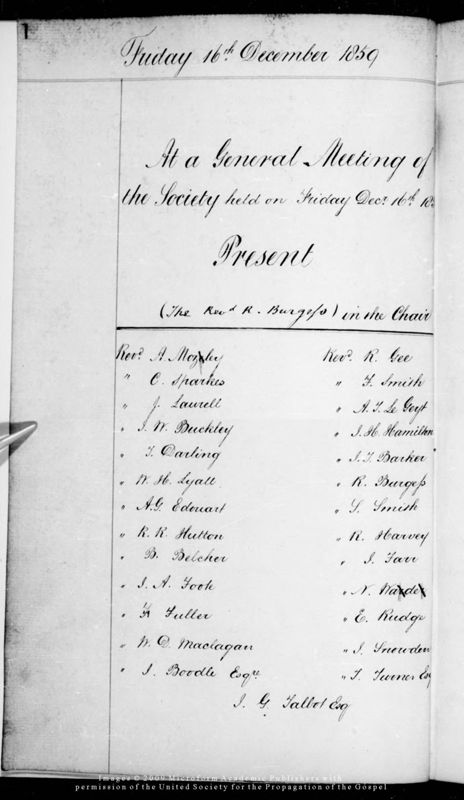 1
Friday 16th December 1859
At a General Meeting of
the Society held on Friday Decr. 16th 185
Present
(The Revd R. Burgess) in the Chair
Revd. A. Mozley
" C. Sparkes
" J. Laurell
" J. W. Buckley
" T. Darling
" W. H. Lyall
" A. G. Edouart
" R. R. Hutton
" B. Belcher
" J. A. Foote
" Fuller
" W. D. Maclagan
" J. Boodle Esqre
Revd. R. Gee
" F. Smith
" A. T. Le Geyt
" J. H. Hamilton
" J. T. Barker
" R. Burgess
" S. Smith
" R. Harvey
" J. Tarr
" N.
" E. Rudge
" J. Snowden
" T. Turner Esq
J. G. Talbot Esq
Images © 2009 Microform Academic Publishers with
permission of the United Society for the Propagation of the Gospel